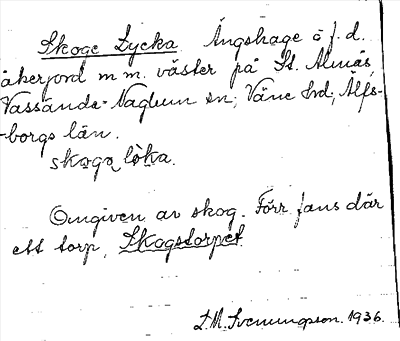 Skoge Lycka Ängshage å f. d.
åkerjord m m. väster på St. Almås,
Vassända-Naglum sn; Väne Hd; Älfs-
-borgs län.
skoga lö̀ka.
Omgiven av skog. Förr fans där
ett torp, Skogstorpet.
L.M. Svenungsson. 1936.